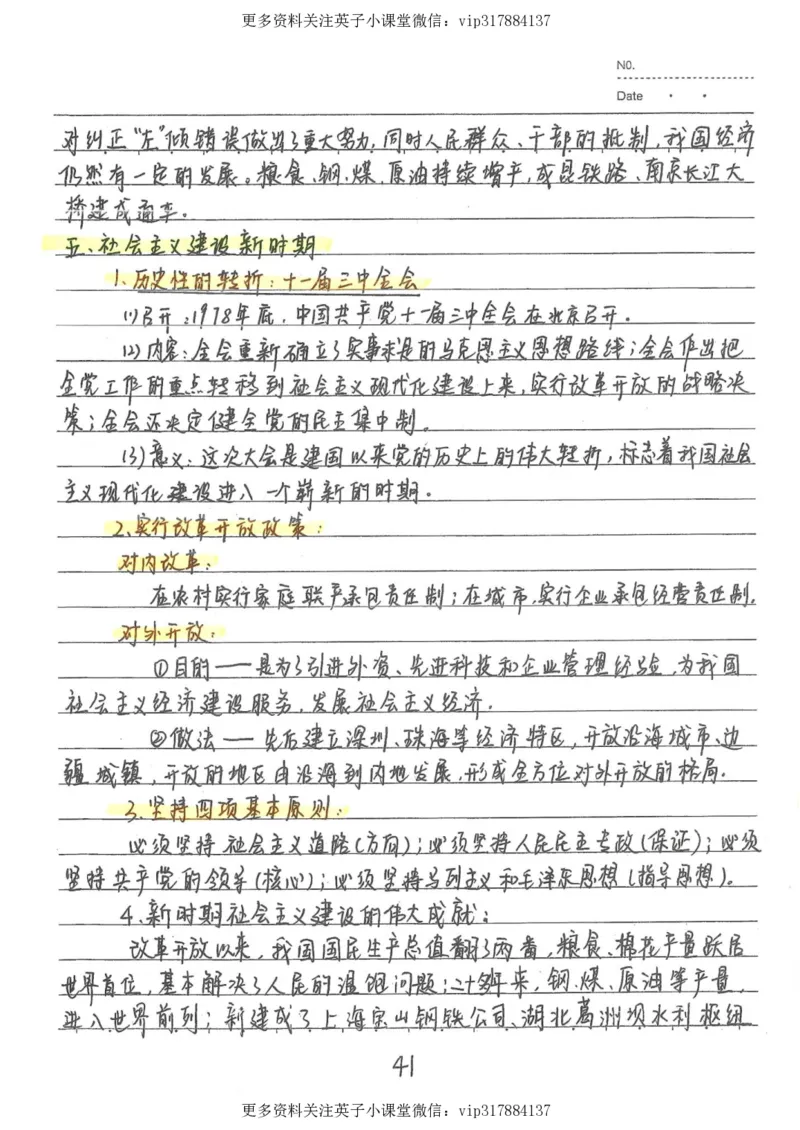 更多资料关注英子小课堂微信：vip317884137
NO.
Date
对纠正"左"倾错误做出了重大努力，同时人民群众、干部的抵制，我国经济
仍然有一定的发展。粮食、钢、煤、原油持续增产，成昆铁路、南京长江大
桥建成通车。
五、社会主义建设新时期
1、历史性的转折：十一届三中全会
(1)召开：1978年底，中国共产党十一届三中全会在北京召开。
(2)内容：全会重新确立了实事求是的马克思主义思想路线；全会作出把
全党工作的重点转移到社会主义现代化建设上来，实行改革开放的战略决
策；全会还决定健全党的民主集中制。
(3)意义：这次大会是建国以来党的历史上的伟大转折，标志着我国社会
主义现代化建设进入一个崭新的时期。
2、实行改革开放政策：
对内改革：
在农村实行家庭联产承包责任制；在城市，实行企业承包经营责任制。
对外开放：
①目的——是为了引进外资、先进科技和企业管理经验，为我国
社会主义经济建设服务，发展社会主义经济。
②做法——先后建立深圳、珠海等经济特区，开放沿海城市、边
疆城镇，开放的地区由沿海到内地发展，形成全方位对外开放的格局。
3、坚持四项基本原则：
必须坚持社会主义道路(方向)；必须坚持人民民主专政(保证)；必须
坚持共产党的领导(核心)；必须坚持马列主义和毛泽东思想(指导思想)。
4、新时期社会主义建设的伟大成就：
改革开放以来，我国国民生产总值翻了两番，粮食、棉花产量跃居
世界首位，基本解决了人民的温饱问题；二十多年来，钢、煤、原油等产量，
进入世界前列；新建成了上海宝山钢铁公司、湖北葛洲坝水利枢纽
41
更多资料关注英子小课堂微信：vip317884137